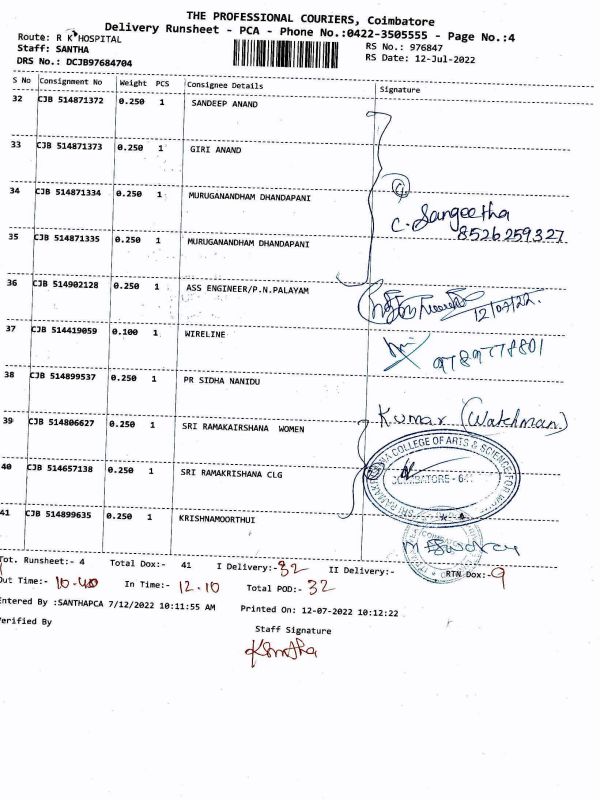 THE PROFESSIONAL COURIERS, Coimbatore
Delivery Runsheet - PCA - Phone No.:0422-3505555 - Page No.:4
Route: R K HOSPITAL
RS No.: 976847
Staff: SANTHA
RS Date: 12-Jul-2022
DRS No.: DCJB97684704
S No Consignment No Weight PCS Consignee Details Signature
32 CJB 514871372 0.250 1 SANDEEP ANAND
33 CJB 514871373 0.250 1 GIRI ANAND
34 CJB 514871334 0.250 1 MURUGANANDHAM DHANDAPANI
C. Sangeetha
8526259327
35 CJB 514871335 0.250 1 MURUGANANDHAM DHANDAPANI
36 CJB 514902128 0.250 1 ASS ENGINEER/P.N.PALAYAM
12/07/22.
37 CJB 514419059 0.100 1 WIRELINE
9789778801
38 CJB 514899537 0.250 1 PR SIDHA NANIDU
Kumar (Watchman)
39 CJB 514806627 0.250 1 SRI RAMAKAIRSHANA WOMEN
COLLEGE OF ARTS & SCIENCE FOR
40 CJB 514657138 0.250 1 SRI RAMAKRISHANA CLG
COIMBATORE - 641
41 CJB 514899635 0.250 1 KRISHNAMOORTHUI
Tot. Runsheet:- 4 Total Dox:- 41 I Delivery:- 32 II Delivery:- RTN Dox:- 9
Out Time:- 10.40 In Time:- 12.10 Total POD:- 32
Entered By :SANTHAPCA 7/12/2022 10:11:55 AM Printed On: 12-07-2022 10:12:22
Verified By
Staff Signature